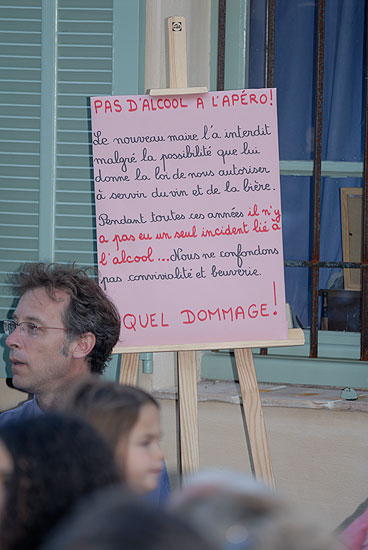 PAS D'ALCOOL A L'APÉRO!
Le nouveau maire l'a interdit
malgré la possibilité que lui
donne la loi de nous autoriser
à servir du vin et de la bière.
Pendant toutes ces années il n'y
a pas eu un seul incident lié à
l'alcool ... Nous ne confondons
pas convivialité et beuverie.
QUEL DOMMAGE!